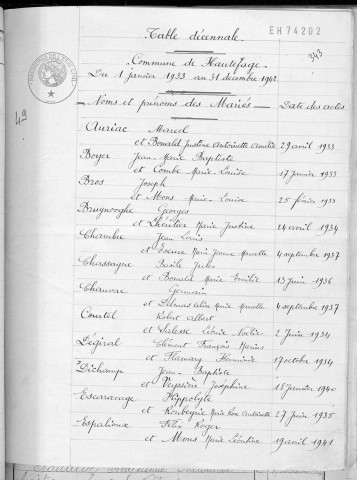 EH 74202
343
Table décennale
Commune de Hautefage
Du 1 janvier 1933 au 31 décembre 1942
49
Noms et prénoms des Mariés Date des actes
Auriac Marcel
et Bonald Justine Antoinette Amélie 29 avril 1933
Boyer Jean-Marie Baptiste
et Combe Marie-Louise 17 janvier 1933
Bros Joseph
et Mons Marie-Louise 25 février 1933
Bruynooghe Georges
et Lheritier Marie Justine 14 avril 1934
Chambre Jean Louis
et Marie Jeanne Marcelle 4 septembre 1937
Chassagne Basile Jules
et Bonald Marie Emilie 13 juin 1936
Chauvre Germain
et Delmas Marie Marcelle 4 septembre 1937
Courtel Robert Albert
et Léonie Noélie 2 juin 1934
Dégiral Clément François Marius
et Flamary Herminie 17 octobre 1934
Déchamp Jean-Baptiste
et Veyssière Joséphine 15 janvier 1940
Escaravage Hippolyte
et Roubeyrie Marie Rose Antoinette 27 juin 1935
Espalieux Félix Roger
et Mons Marie Léontine 19 avril 1941